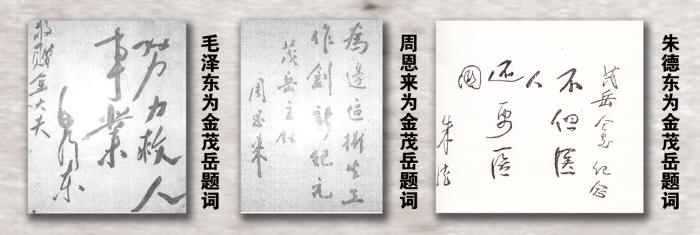 毛泽东为金茂岳题词
努力救人
事業
毛泽东
敬赠金大夫
周恩来为金茂岳题词
為邊區衛生工
作創新紀元
茂岳主任
周恩来
朱德东为金茂岳题词
茂岳 纪念
不但医
人
还要医
国
朱德